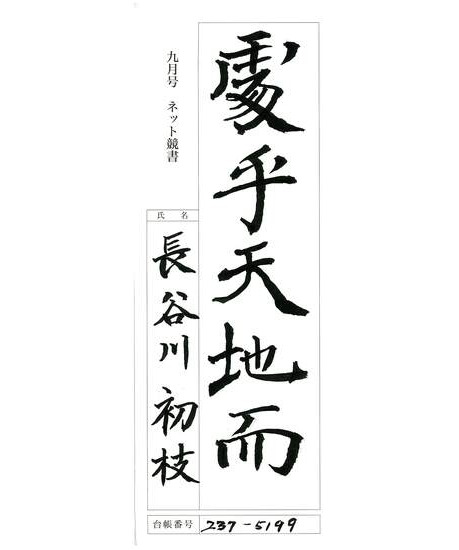 處乎天地而
九月号 ネット競書
氏名
長谷川 初枝
台帳番号 237-5199